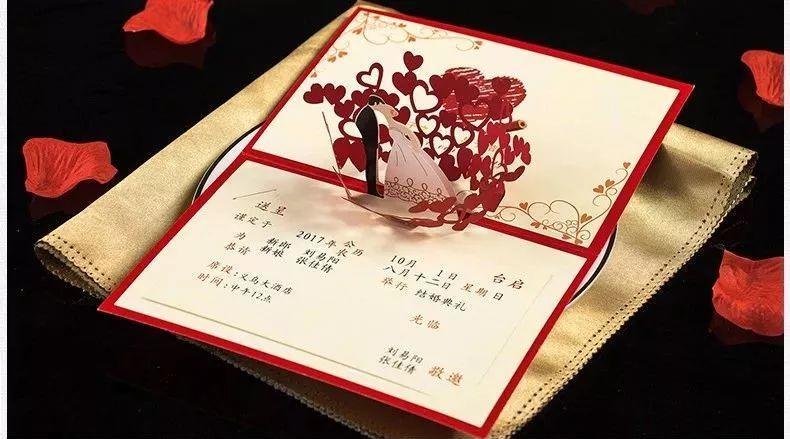 送呈 台启
谨定于 2017年 公历 10月 1日 星期日
农历 八月十二日
为 新郎 刘易阳
新娘 张佳倩 举行 结婚典礼
恭请 光临
席设：义乌大酒店
时间：中午12点
刘易阳
张佳倩 敬邀